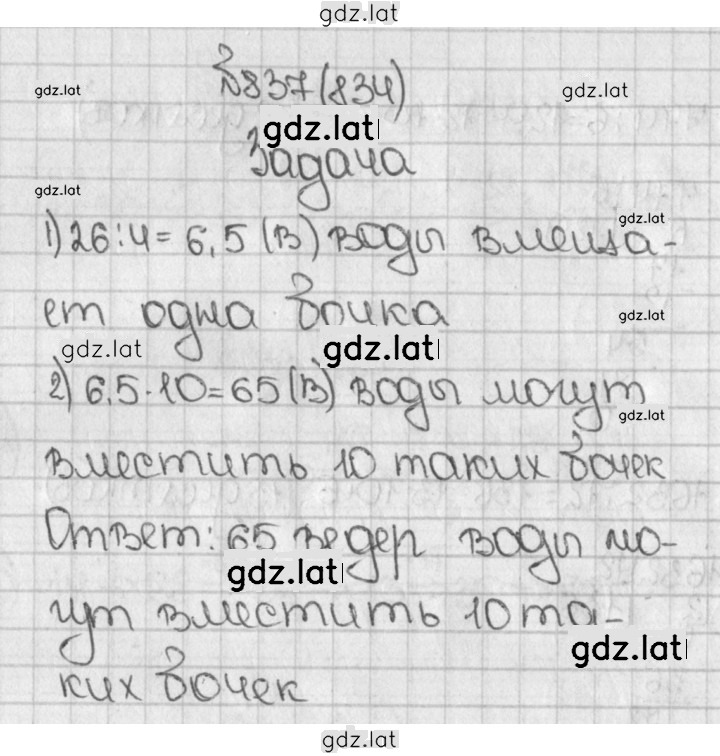 gdz.lat
№837(834)
gdz.lat
gdz.lat
gdz.lat
Задача
gdz.lat
gdz.lat
1) 26:4= 6,5 (в) воды вмеща-
ет одна бочка
gdz.lat
gdz.lat
gdz.lat
2) 6,5·10=65 (в) воды могут
gdz.lat
вместить 10 таких бочек
Ответ: 65 ведер воды мо-
gdz.lat
гут вместить 10 та-
gdz.lat
ких бочек
gdz.lat